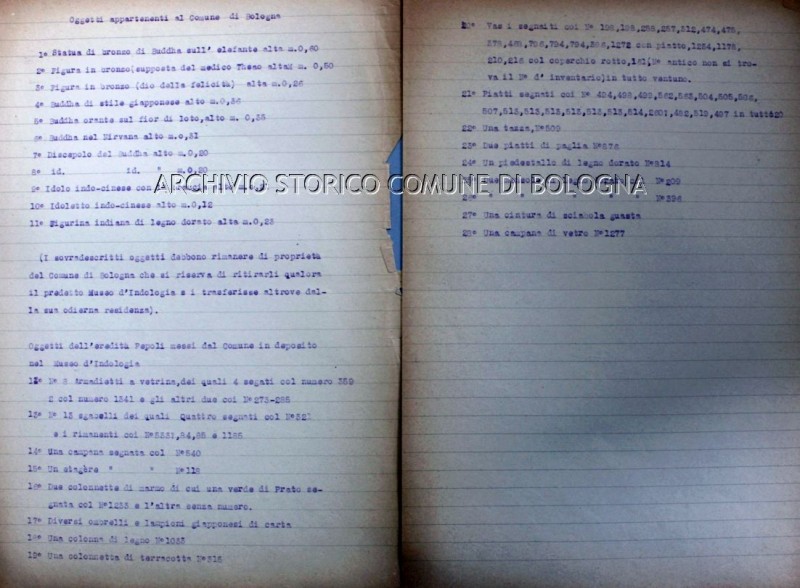 Oggetti appartenenti al Comune di Bologna
1° Statua di bronzo di Buddha sull' elefante alta m.0,60
2° Figura in bronzo(supposta del medico Theao altaM m. 0,50
3° Figura in bronzo (dio della felicità) alta m.0,26
4° Buddha di stile giapponese alto m.0,36
5° Buddha orante sul fior di loto,alto m. 0,35
6° Buddha nel Nirvana alto m.0,31
7° Discepolo del Buddha alto m.0,20
8° id. id. m.0,20
9° Idolo indo-cinese con
10° Idoletto indo-cinese alto m.0,12
11° Figurina indiana di legno dorato alta m.0,28
(I sovradescritti oggetti debbono rimanere di proprietà
del Comune di Bologna che si riserva di ritirarli qualora
il predetto Museo d'Indologia s i trasferisse altrove dal-
la sua odierna residenza).
Oggetti dell'eredità Pepoli messi dal Comune in deposito
nel Museo d'Indologia
12° N° 8 Armadietti a vetrina,dei quali 4 segati col numero 359
2 col numero 1341 e gli altri due coi N°273-288
13° N° 13 sgabelli dei quali Quattro segnati col N°
e i rimanenti coi
14° Una campana segnata col N°540
15° Un stagère " " N°118
16° Due colonnette di marmo di cui una verde di Prato se-
gnata col N°1233 e l'altra senza numero.
17° Diversi ombrelli e lampioni giapponesi di carta
18° Una colonna di legno N°1033
19° Una colonnetta di terracotta N°315
20° Vas i segnati coi N° 198,195,255,257,512,474,475,
,1272 con piatto,1254,1175,
210,216 col coperchio rotto,181(N° antico non si tro-
va il N° d' inventario)in tutto ventuno.
21° Piatti segnati coi N° 494,492,493,562,563,504,505,506,
507,513,513,513,513,513,513,514,2601,482,519,497 in tutto20
22° Una tazza,N°509
23° Due piatti di paglia N°578
24° Un piedestallo di legno dorato N°814
N°200
26° " " " " N°396
27° Una cintura di sciabola guasta
28° Una campana di vetro N°1277
ARCHIVIO STORICO COMUNE DI BOLOGNA